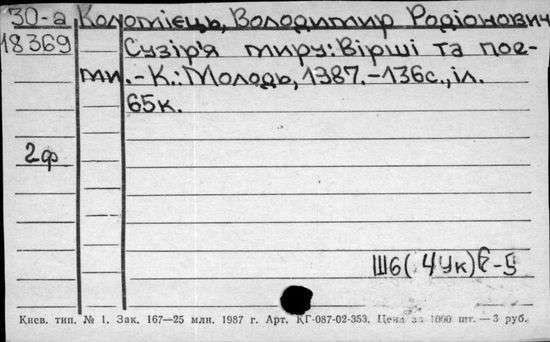 30-а Коломієць, Володимир Родіонович
18369 Сузір'я миру: Вірші та пое-
ми.-К.: Молодь, 1987.-136с., іл.
65к.
2ф
Ш6(4Ук)6-5
Киев. тип. № 1. Зак. 167—25 млн. 1987 г. Арт. КГ-087-02-353. Цена за 1000 шт. — 3 руб.